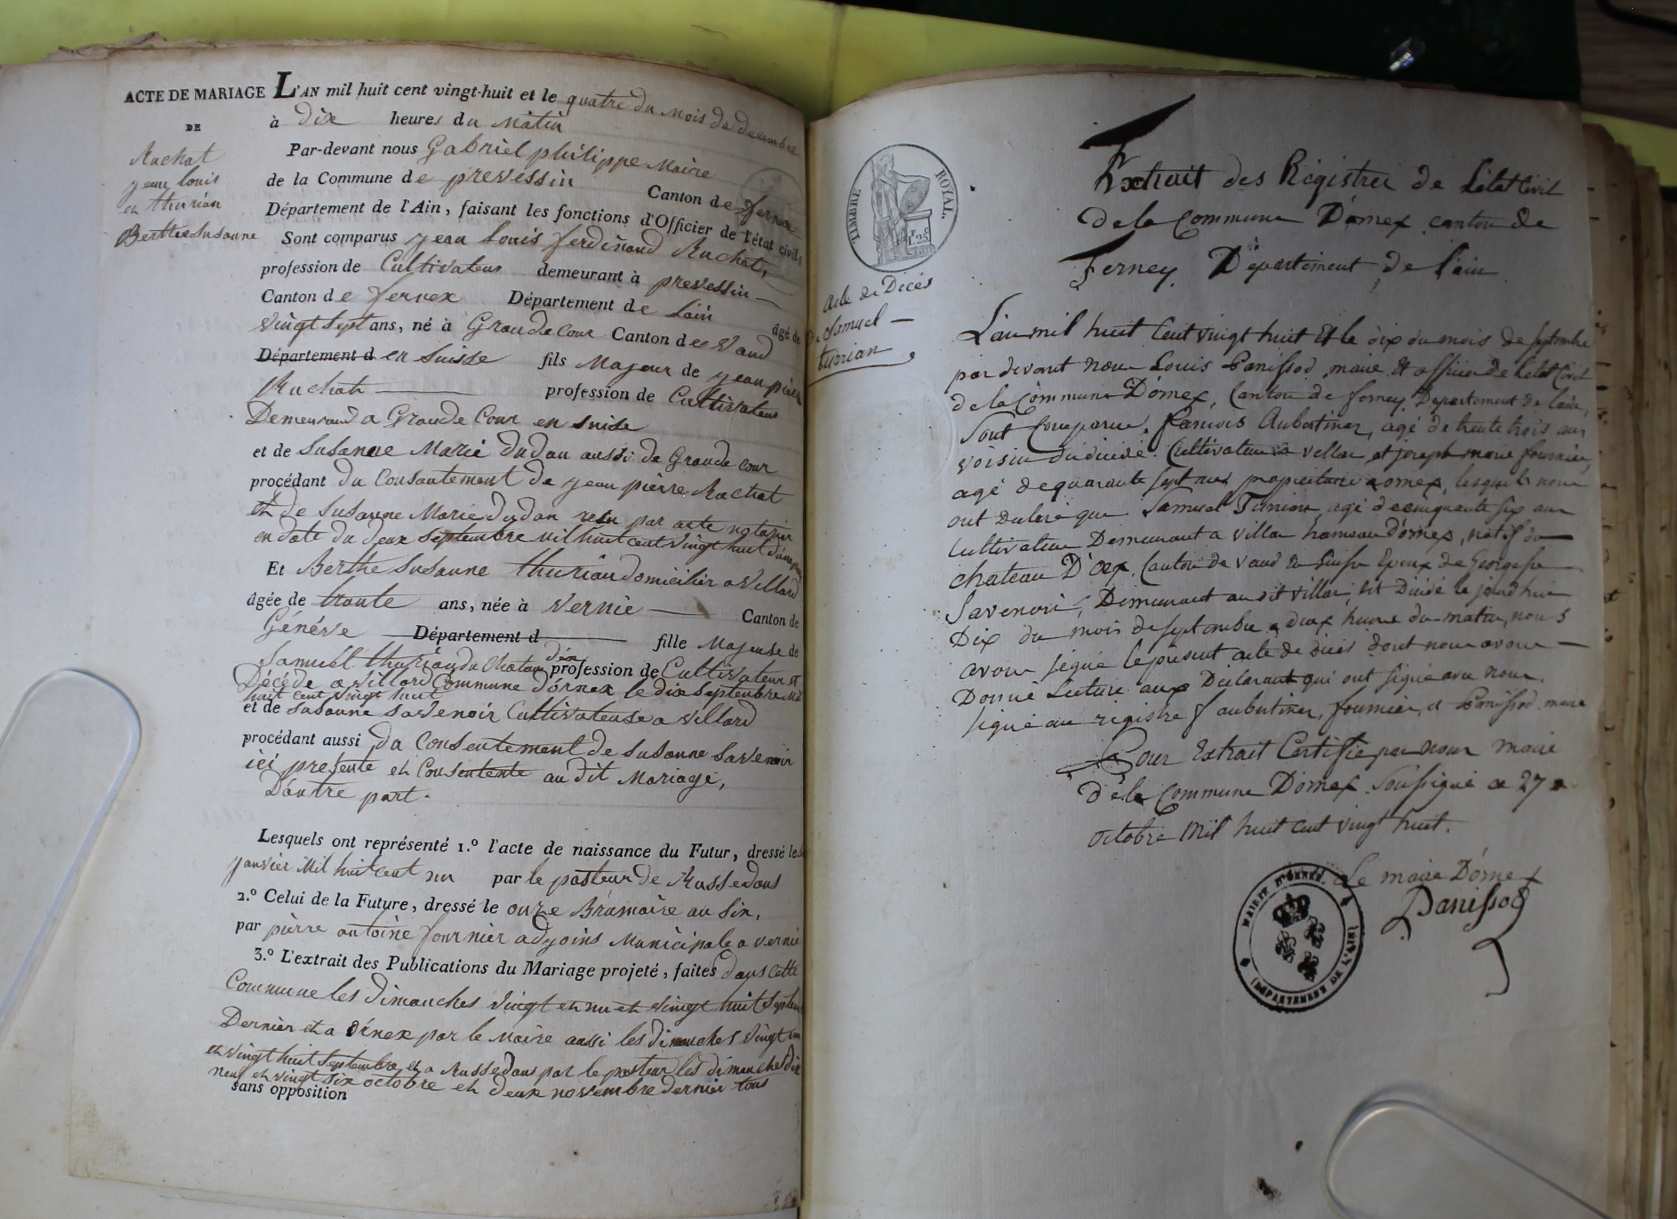 ACTE DE MARIAGE
DE
Ruchat
jean Louis
et thurian
Berthe Susanne
L'AN mil huit cent vingt-huit et le quatre du mois de decembre
à dix heures du Matin
Par-devant nous Gabriel philippe Maire
de la Commune de prevessin Canton de fernex
Département de l'Ain, faisant les fonctions d'Officier de l'état civil
Sont comparus jean Louis ferdinand Ruchat,
profession de Cultivateur demeurant à prevessin
Canton de fernex Département de Lain âgé de
vingt sept ans, né à Grande Cour Canton de Vaud
Département d en Suisse fils Majeur de jean pierre
Ruchat profession de Cultivateur
Demeurand a Grande Cour en suise
et de Susanne Marie dudan aussi de Grande Cour
procédant du Consentement de jean pierre Ruchat
et de Susanne Marie dudan par acte notarier
en date du deux septembre mil huit cent vingt huit
Et Berthe Susanne thurian domicilier a Villard
âgée de trante ans, née à Vernie Canton de
Genéve Département d fille Majeuse de
Samuel thurian du Chateau dex profession de Cultivateur et
Décéde a villard Commune dornex le dix Septembre Mil
huit cent vingt huit
et de Susanne Savenoir Cultivateuse a Villard
procédant aussi du Consentement de Susanne Savenoir
ici presente et Consentente au dit Mariage,
D'autre part.
Lesquels ont représenté 1.º l'acte de naissance du Futur, dressé le
janvier Mil huit cent un par le pasteur de Russedons
2.º Celui de la Future, dressé le onze Brumaire an six,
par pierre antoine fournier adjoins Municipale a vernie
3.º L'extrait des Publications du Mariage projeté, faites dans cette
Commune les dimanches vingt et un et vingt huit Septembre
Dernier et a ornex par le Maire aussi les dimanches vingt un
et vingt huit Septembre et a Russedons par le pasteur les dimanches dix
neuf et vingt six octobre et deux novembre dernier tous
sans opposition
TIMBRE ROYAL.
Acte de Décés
De Samuel
turian
Extrait des Régistres de L'état Civil
de la Commune D'ornex canton de
Ferney Département de l'ain
L'an mil huit Cent vingt huit et le dix du mois de septembre
par devant nous Louis Panissod, maire et officier de L'etat Civil
de la Commune D'ornex, Canton de ferney Departement de l'ain,
Sont Comparus, françois Aubertiner, agé de trente trois ans
voisin du décédé Cultivateur a villar, et joseph marie fournier,
agé de quarante sept ans propriétaire a ornex, lesquels nous
ont declaré que Samuel Turian, agé de cinquante six ans
Cultivateur Demeurant a Villar hameau d'ornex, natif du
chateau D'oex, Canton de vaud en Suisse Epoux de Georgette
Savenoir, Demeurant au dit villar, est Décédé le jourd'hui
Dix du mois de septembre a deux heures du matin, nous
avons signé le présent acte de décés dont nous avons
Donné Lecture aux Déclarants qui ont signé avec nous.
signé au registre f aubertiner, fournier, et Panissod maire
Pour Extrait Certifié par nous maire
de la Commune D'ornex Soussigné ce 27
octobre Mil huit cent vingt huit.
Le maire D'ornex
Panissod
MAIRIE D'ORNEX.
DÉPARTEMENT DE L'AIN